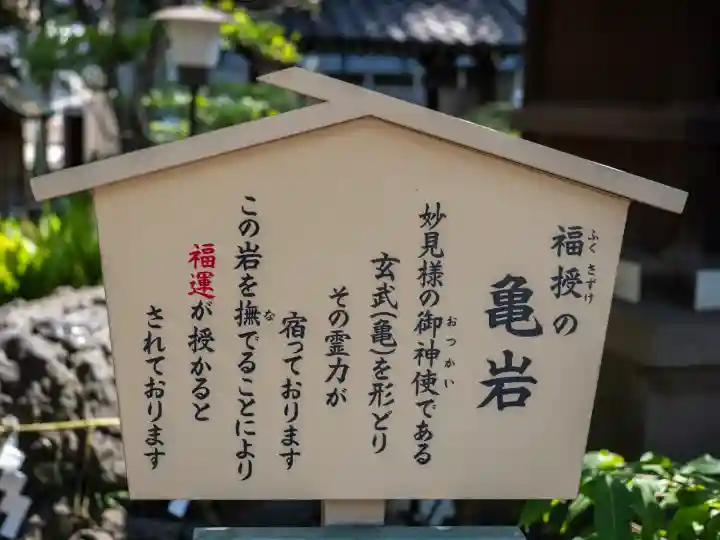 福授の
ふく さずけ
亀岩
妙見様の御神使である
おつかい
玄武(亀)を形どり
その霊力が
宿っております
この岩を撫でることにより
な
福運が授かると
されております